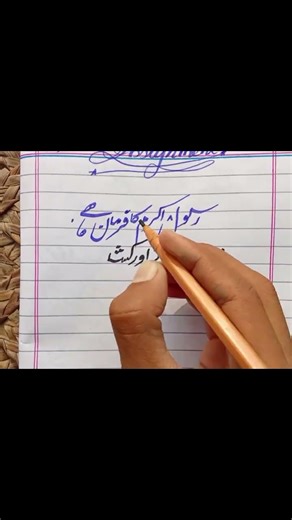 Assignment
رسول اکرم کا فرمان ہے
اور کشا